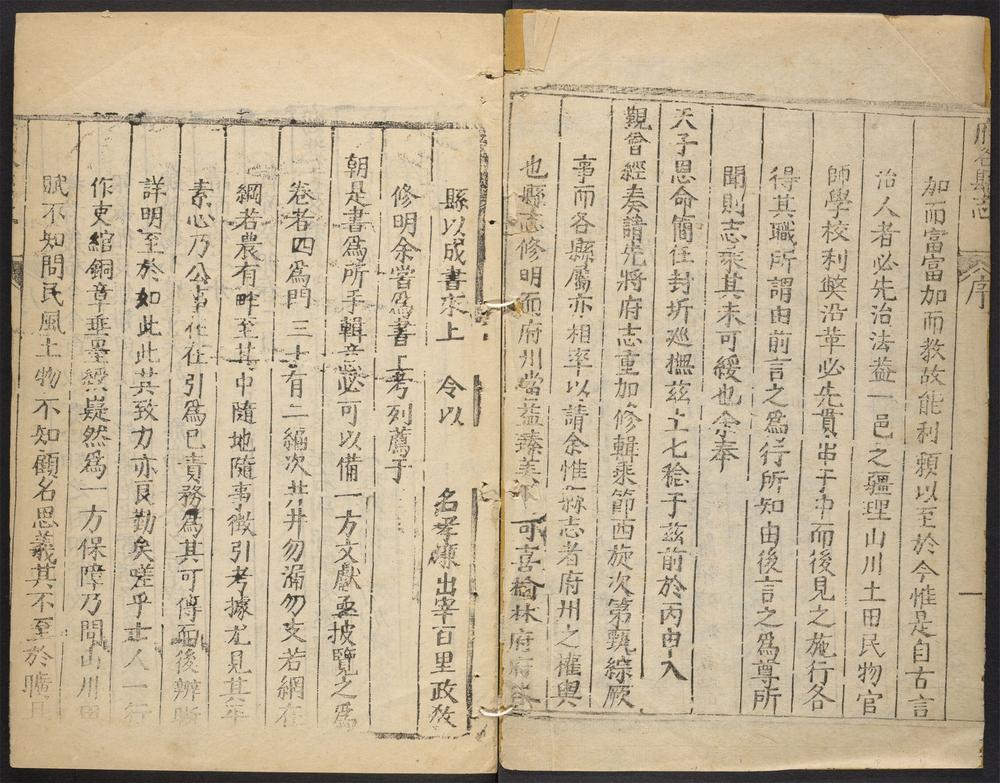 縣志 序 一
加而富富加而教故能利賴以至於今惟是自古言
治人者必先治法蓋一邑之疆理山川土田民物官
師學校利獘沿革必先貫串于中而後見之施行各
得其職所謂由前言之為行所知由後言之為尊所
聞則志乘其未可緩也余奉
天子恩命簡任封圻巡撫茲土七稔于茲前於丙申入
覲曾經奏請先將府志重加修輯乘節西旋次第甄綜厥
事而各縣屬亦相率以請余惟縣志者府州之權輿
也縣志修明而府州當益臻美 可喜榆林府府
縣以成書來上 令以 名孝廉出宰百里政教
修明余嘗為書上考列薦于
朝是書為所手輯意必可以備一方文獻亟披覽之為
卷者四為門三十有二編次井井勿漏勿支若網在
綱若農有畔至其中隨地隨事徵引考據尤見其平
素心乃公事在在引為己責務為其可傳而後辨晰
詳明至於如此此其致力亦良勤矣嗟乎士人一行
作吏綰銅章垂墨綬嶷然為一方保障乃問山川田
賦不知問民風土物不知顧名思義其不至於曠且